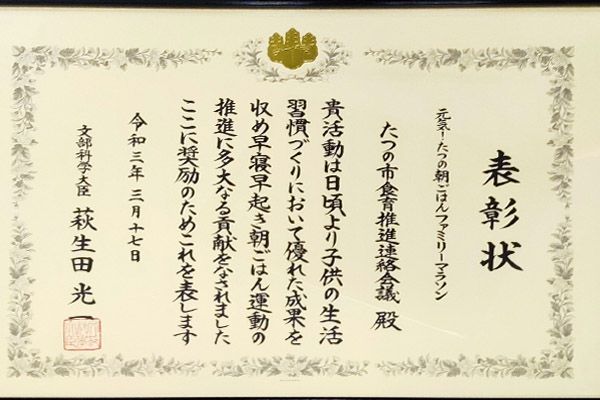 表彰状
元気!たつの朝ごはんファミリーマラソン
たつの市食育推進連絡会議 殿
貴活動は日頃より子供の生活
習慣づくりにおいて優れた成果を
収め早寝早起き朝ごはん運動の
推進に多大なる貢献をなされました
ここに奨励のためこれを表します
令和三年三月十七日
文部科学大臣 萩生田光一